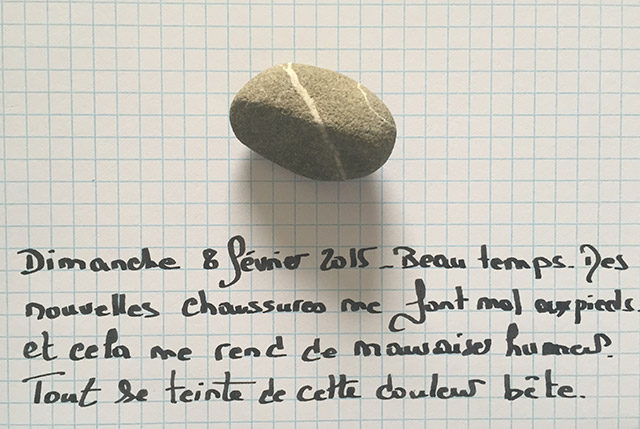 Dimanche 8 février 2015 - Beau temps. Des
nouvelles chaussures me font mal aux pieds.
et cela me rend de mauvaise humeur.
Tout se teinte de cette douleur bête.